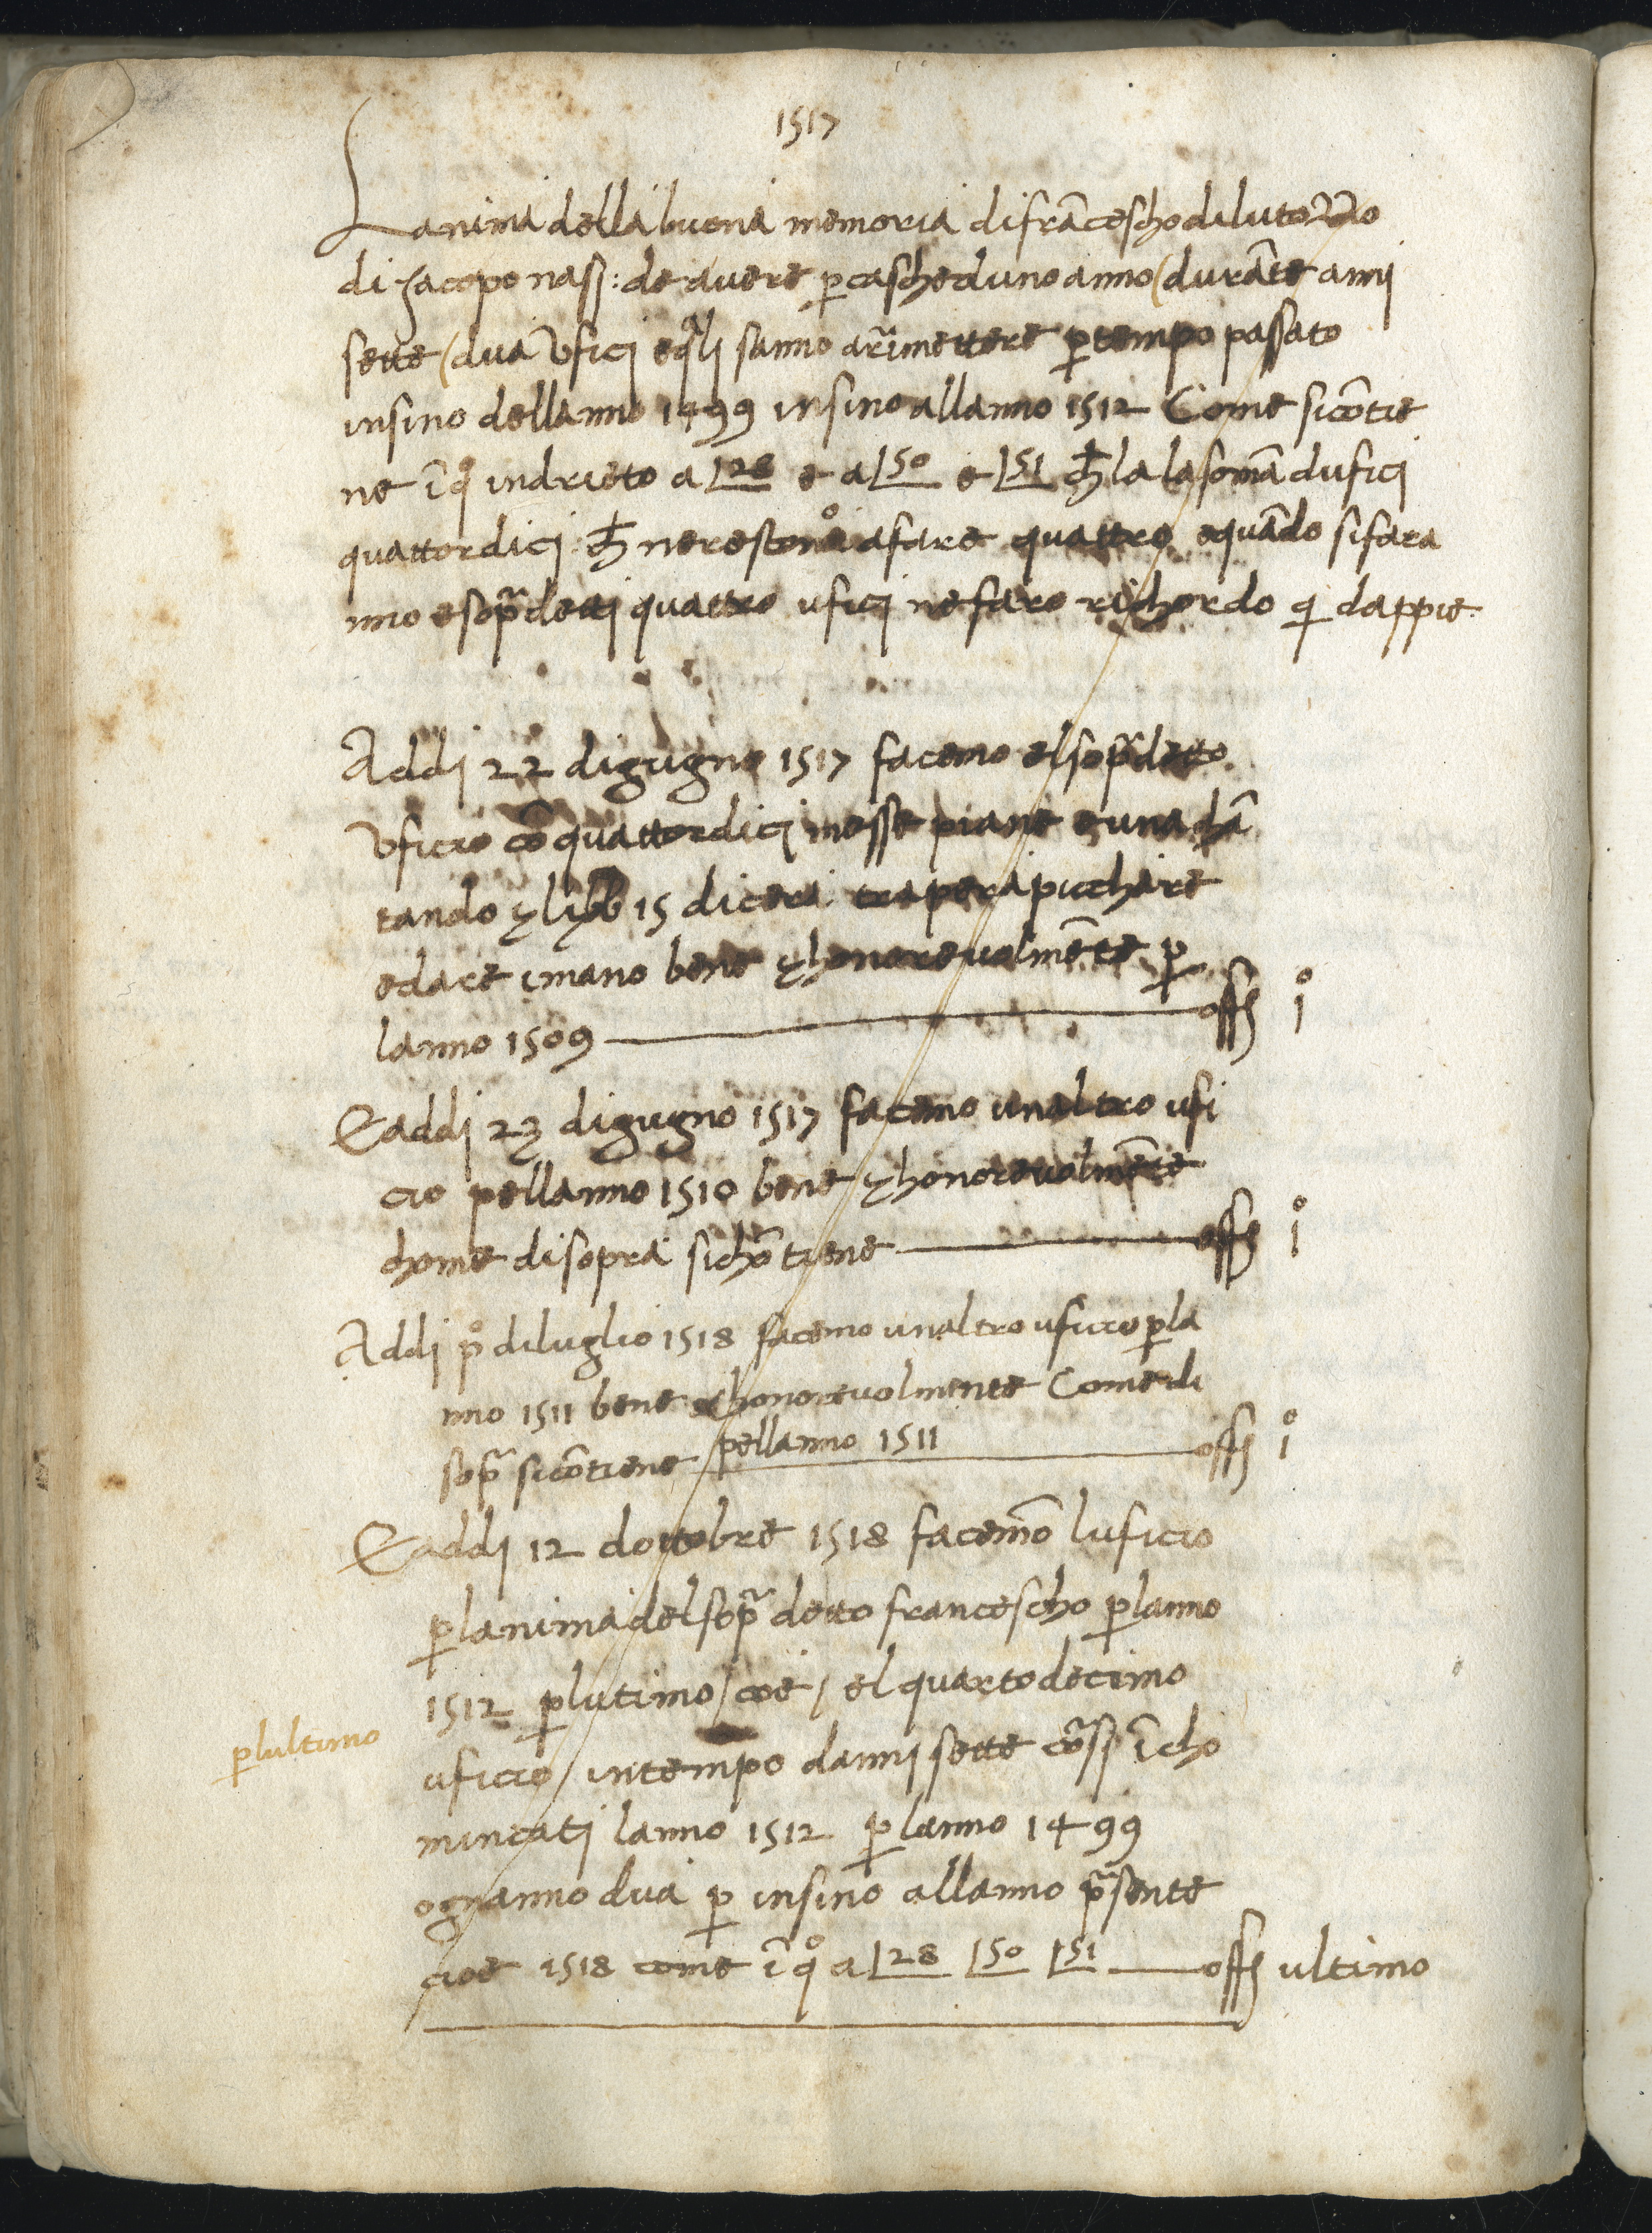 1517
Lanima della buena memoria di frācescho di lutozzo
di Jacopo nasj: de avere p caschedunoanno (durāte annj
sette (dua Uficj eqlj sanno arimettere p tempo passato
insino dellanno 1499 insino allanno 1512 Come sicōtie
ne ī qº indrieto a 28 e a 50 e 51 ch la la somā duficj
quattordicj: ch nerestonº afare quattro equādo sifara
nno esopᵃdettj quattro uficj nefaro richordo qi dappie
Addj 22 digugno 1517 facemo elsopᵃdetto
Uficio cō quattordicj messe piane e una chā
tando ҽ libb 15 dicera tra per apicchare
edare i mano bene ҽ honorevolmēte p
lanno 1509 offj jº
E addj 23 digugno 1517 facemo unaltro ufi
cio pellanno 1510 bene ҽ honorevolmēte
chome disopra sichōtiene offj jº
Addj pº diluglio 1518 facemo unaltro uficio p la
nno 1511 bene ҽ honorevolmente Come di
sopᵃ sicōtiene pellanno 1511 offj jº
E addj 12 dottobre 1518 facemō luficio
p lanima del sopᵃ detto francescho p lanno
1512 p lutimo / cioe / el quartodecimo
p lultimo
uficio / intempo dannj sette cōsj ī cho
mincatj lanno 1512 p lanno 1499
ognanno dua p insino allanno psente
cioe 1518 come ī qº a 28 50 51 offj ultimo